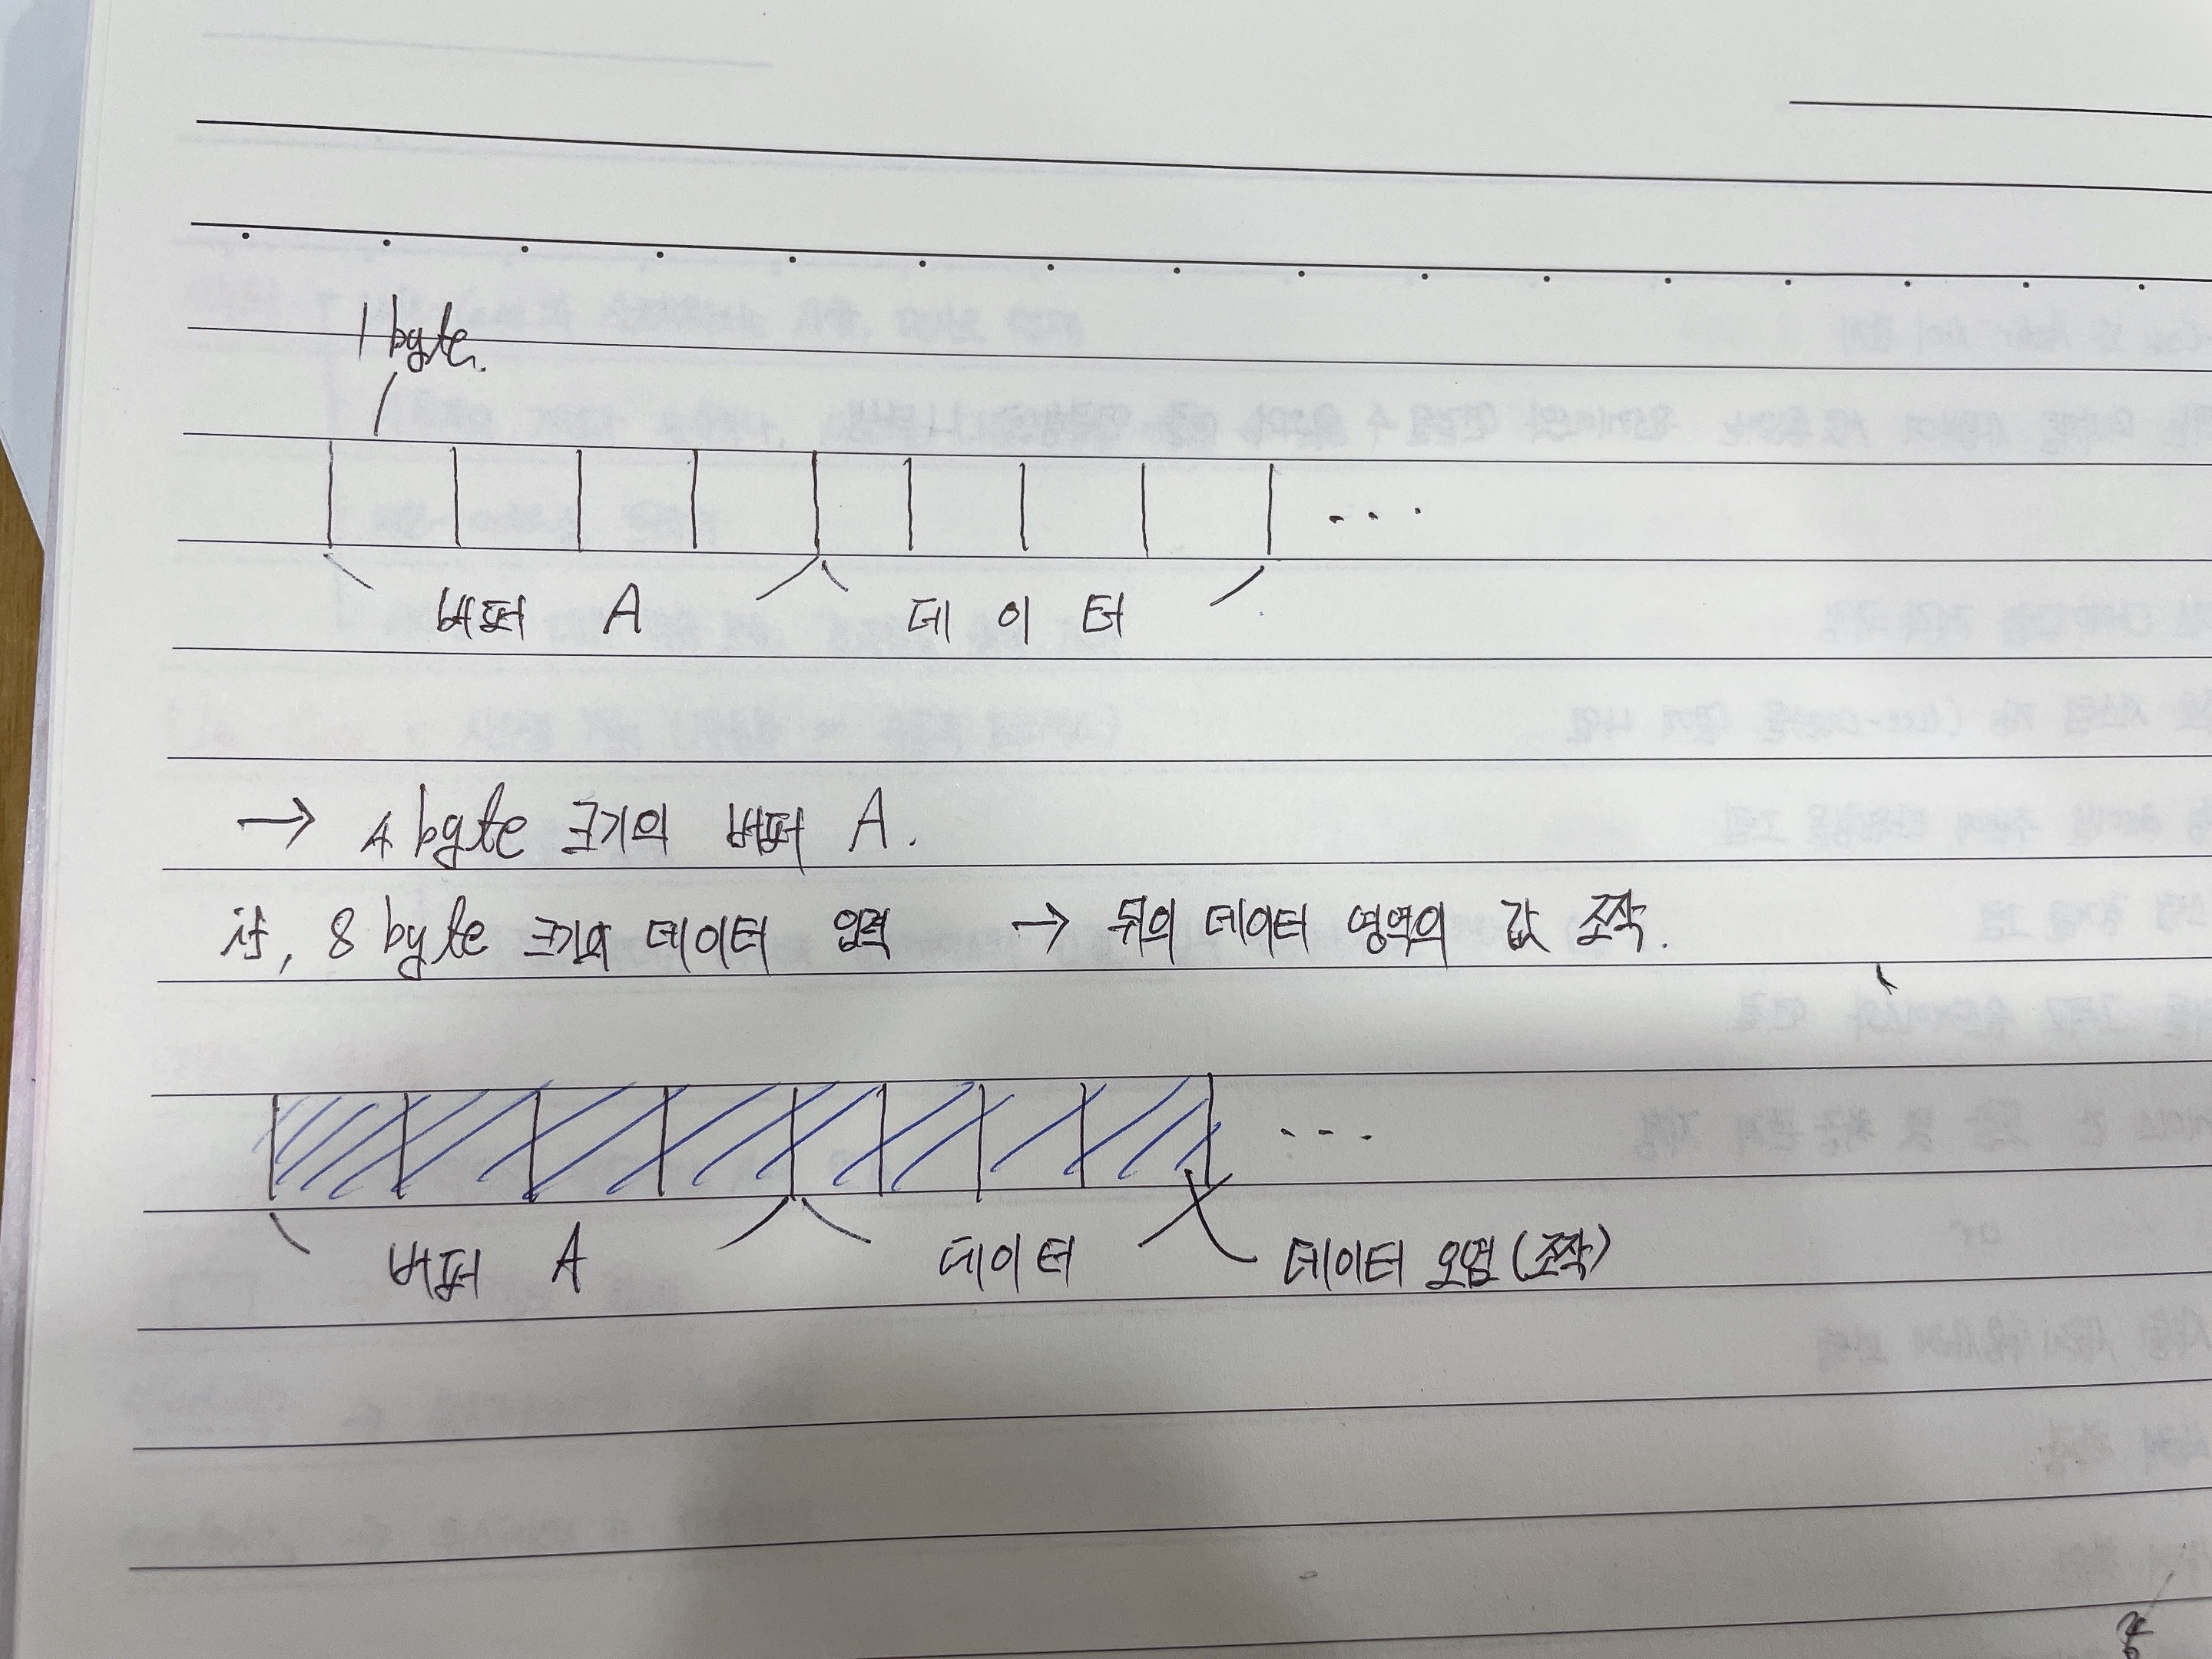 1 byte.
...
버퍼 A 데이터
→ 4 byte 크기의 버퍼 A.
if, 8 byte 크기의 데이터 입력 → 뒤의 데이터 영역의 값 조작.
...
버퍼 A 데이터 데이터 오염(조작)